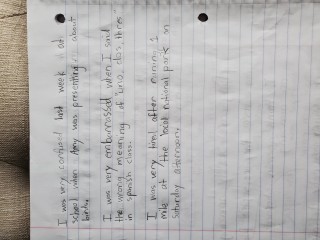 I was very confused last week at
school when Amy was presenting about
I was very embarrassed when I said
the wrong meaning of "uno, dos, tres"
in spanish class.
I was very tired after running 1
mile at the local national park on
Saturday afternoon.